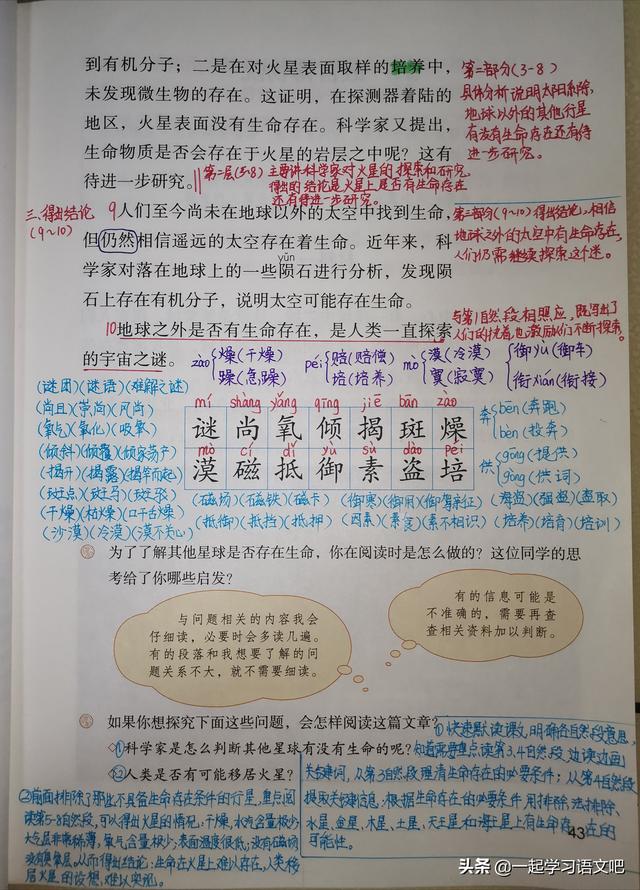 到有机分子；二是在对火星表面取样的培养中，
未发现微生物的存在。这证明，在探测器着陆的
地区，火星表面没有生命存在。科学家又提出，
生命物质是否会存在于火星的岩层之中呢？这有
待进一步研究。
第二部分(3-8)
具体分析说明太阳系除
地球以外的其他行星
有没有生命存在还有待
进一步研究。
第二层(5-8)主要讲科学家对火星的探索和研究。
得出的结论是火星上是否有生命存在
还有待进一步研究。
三、得出结论
(9~10)
9人们至今尚未在地球以外的太空中找到生命，
但仍然相信遥远的太空存在着生命。近年来，科
yǔn
学家对落在地球上的一些陨石进行分析，发现陨
石上存在有机分子，说明太空可能存在生命。
第三部分(9~10)得出结论，相信
地球之外的太空中有生命存在，
人们仍需继续探索这个迷。
10地球之外是否有生命存在，是人类一直探索
的宇宙之谜。
与第1自然段相照应，既写出了
人们的执着也激励人们不断探索。
zào 燥(干燥)
躁(急躁)
péi 赔(赔偿)
培(培养)
mò 漠(冷漠)
寞(寂寞)
御yù(御车)
衔xián(衔接)
(谜团)(谜语)(难解之谜)
(尚且)(崇尚)(风尚)
(氧气)(氧化)(吸氧)
(倾斜)(倾覆)(倾家荡产)
(揭开)(揭露)(揭竿而起)
(斑点)(斑马)(斑驳)
(干燥)(枯燥)(口干舌燥)
(沙漠)(冷漠)(漠不关心)
mí shàng yǎng qīng jiē bān zào
谜 尚 氧 倾 揭 斑 燥
mò cí dǐ yù sù dào péi
漠 磁 抵 御 素 盗 培
奔 bēn(奔跑)
bèn(投奔)
供 gōng(提供)
gòng(供词)
(磁场)(磁铁)(磁卡)
(御寒)(御用)(御驾亲征)
(海盗)(强盗)(盗取)
(抵御)(抵挡)(抵押)
(因素)(素衣)(素不相识)
(培养)(培育)(培训)
为了了解其他星球是否存在生命，你在阅读时是怎么做的？这位同学的思
考给了你哪些启发？
与问题相关的内容我会
仔细读，必要时会多读几遍。
有的段落和我想要了解的问
题关系不大，就不需要细读。
有的信息可能是
不准确的，需要再查
查相关资料加以判断。
如果你想探究下面这些问题，会怎样阅读这篇文章？
①科学家是怎么判断其他星球有没有生命的呢？
②人类是否有可能移居火星？
①快速默读课文，明确各自然段意思，
知道需要重点读第3、4自然段，边读边画
关键词，从第3自然段理清生命存在的必要条件；从第4自然段
提取关键信息：根据生命存在的必要条件，用排除法排除，
水星、金星、木星、土星、天王星和海王星上有生命存在的
可能性。
②前面排除了那些不具备生命存在条件的行星，重点阅
读第5-8自然段，可以得出火星的情况：干燥，水汽含量极少，
大气层非常稀薄，氧气含量极少；表面温度很低；没有磁场
没有臭氧层。从而得出结论：生命在火星上难以存在，人类移
居火星的设想，难以实现。
43
头条 @一起学习语文吧